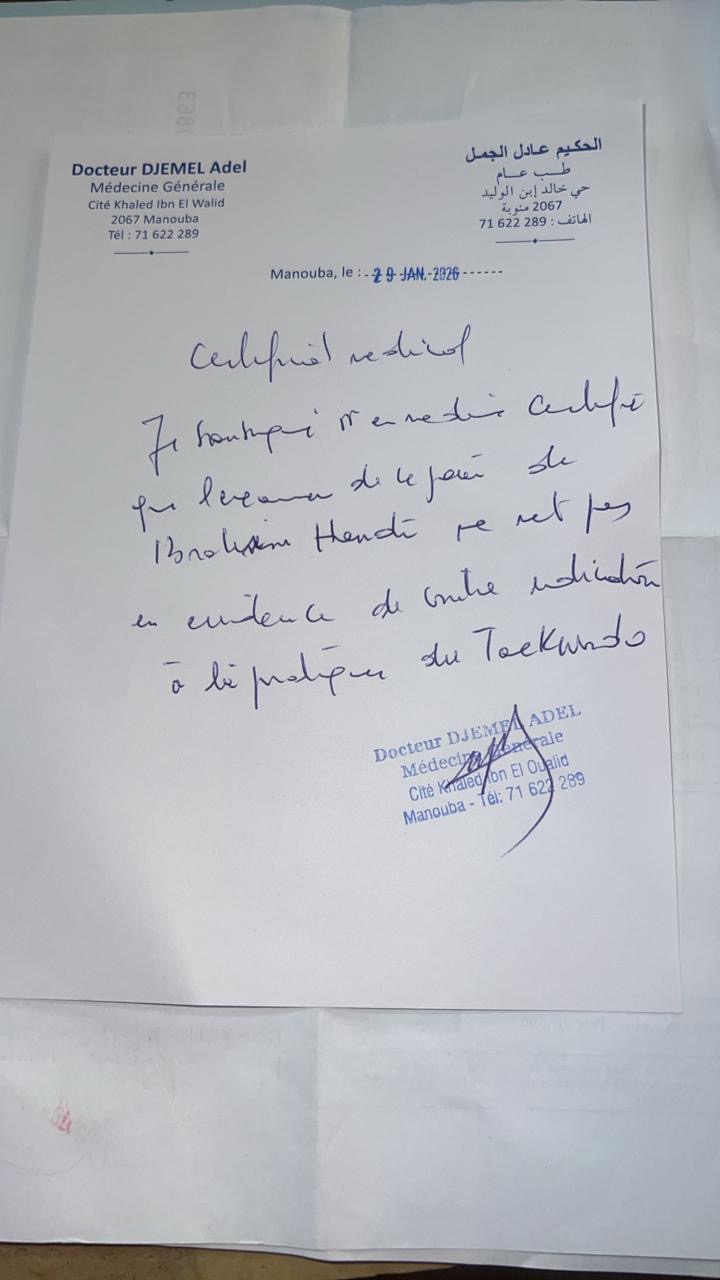 Docteur DJEMEL Adel
Médecine Générale
Cité Khaled Ibn El Walid
2067 Manouba
Tél : 71 622 289
الحكيم عادل الجمل
طب عام
حي خالد إبن الوليد
2067 منوبة
الهاتف : 289 622 71
Manouba, le : 29 JAN. 2026
Certificat medical
Je soussigné Dr en medecine Certifie
que l'examen de ce jour de
Ibrahim Hendi ne met pas
en evidence de contre indication
à la pratique du Taekwndo
Docteur DJEMEL ADEL
Médecine Générale
Cité Khaled Ibn El Oualid
Manouba - Tél: 71 622 289